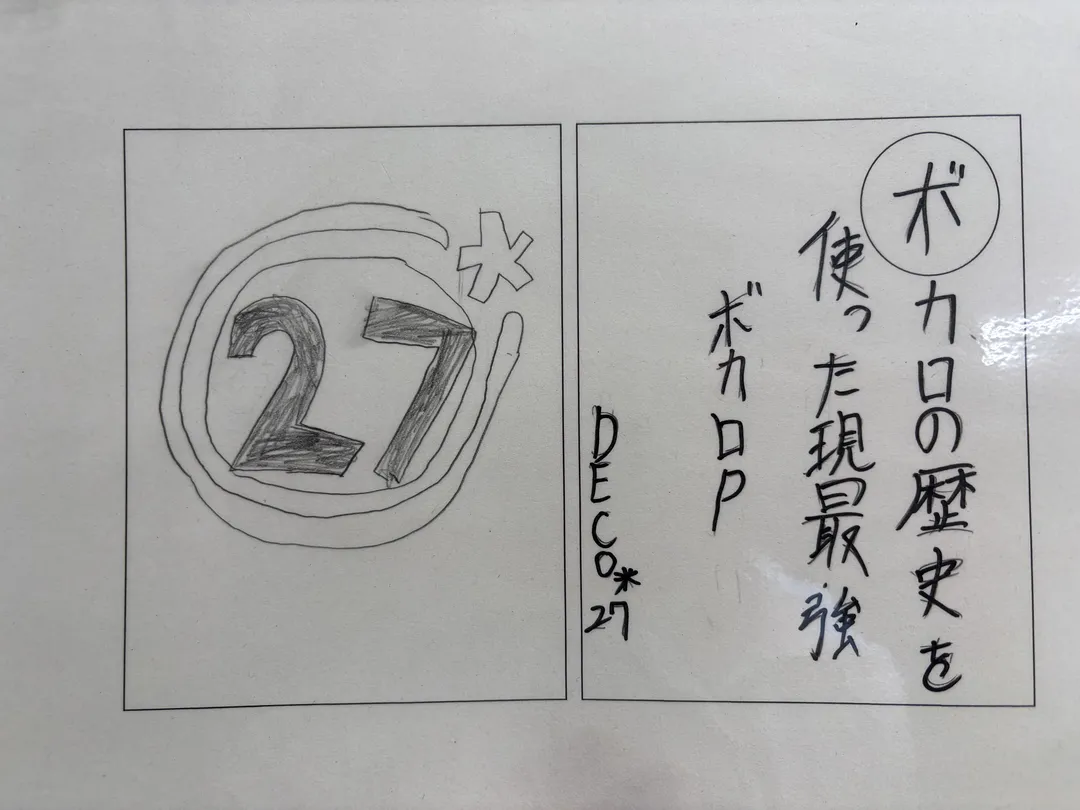 ボカロの歴史を
使った現最強
ボカロP
DECO*27
27*